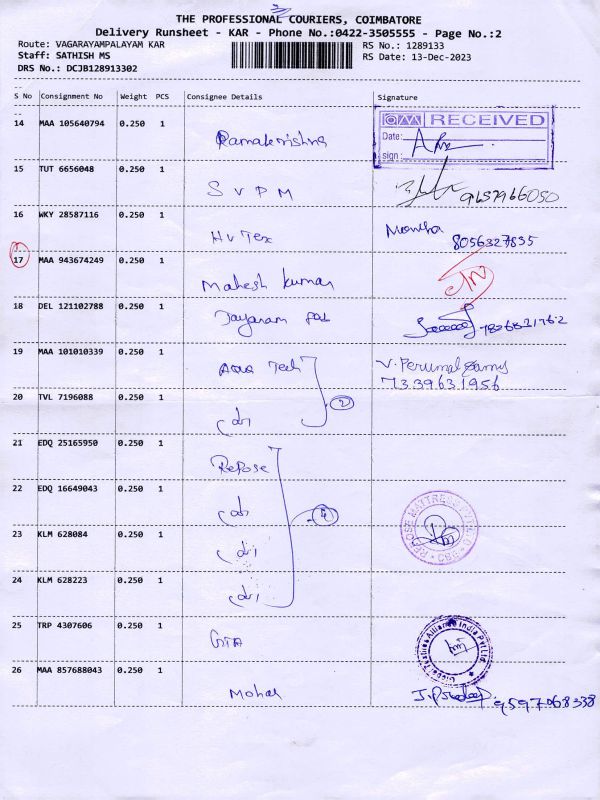 THE PROFESSIONAL COURIERS, COIMBATORE
Delivery Runsheet - KAR - Phone No.:0422-3505555 - Page No.:2
Route: VAGARAYAMPALAYAM KAR RS No.: 1289133
Staff: SATHISH MS RS Date: 13-Dec-2023
DRS No.: DCJB128913302
S No Consignment No Weight PCS Consignee Details Signature
14 MAA 105640794 0.250 1 Ramakrishna
RECEIVED
Date:
sign :
15 TUT 6656048 0.250 1 S V P M 9657966050
16 WKY 28587116 0.250 1 Hv Tex 8056327835
17 MAA 943674249 0.250 1 Mahesh kumar
18 DEL 121102788 0.250 1 Jayaram
19 MAA 101010339 0.250 1 Aqua Tech V. Perumal Samy
7339631956
20 TVL 7196088 0.250 1 2
21 EDQ 25165950 0.250 1 Repose
22 EDQ 16649043 0.250 1 4
23 KLM 628084 0.250 1
24 KLM 628223 0.250 1
25 TRP 4307606 0.250 1 GTA
Global Textiles Alliance India Pvt Ltd
26 MAA 857688043 0.250 1 Mohan 9597068338